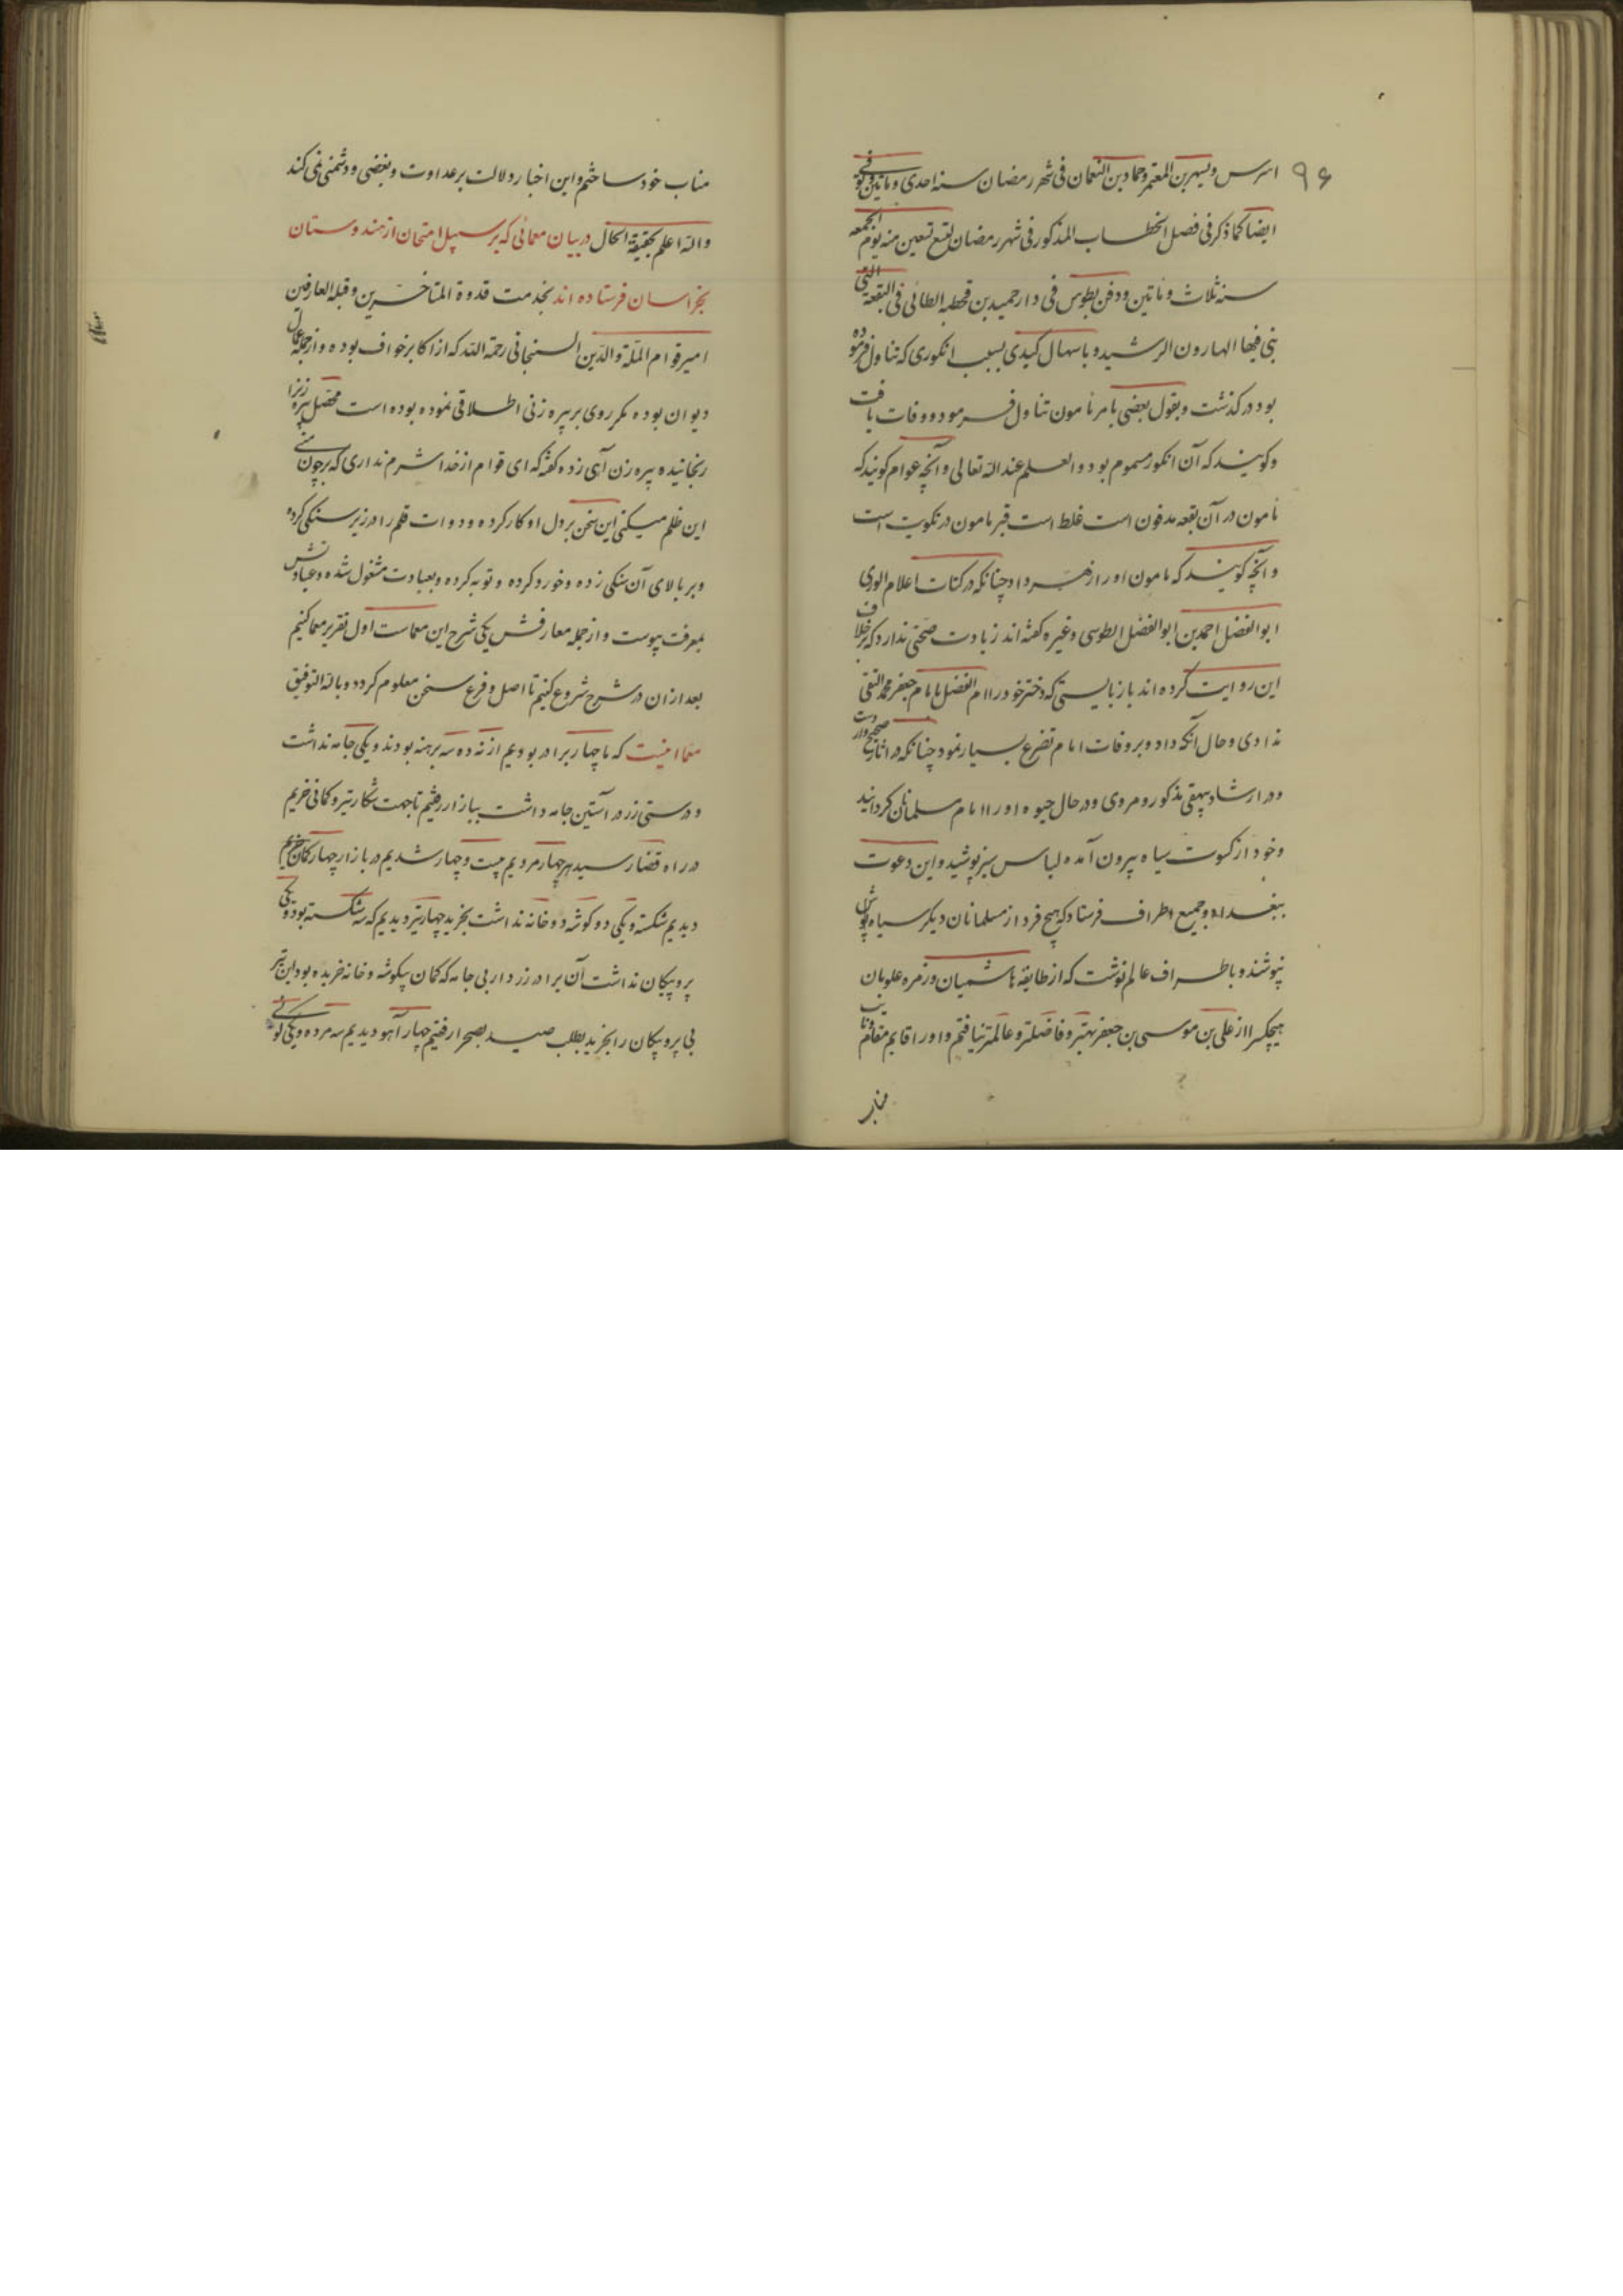 ۹۶
اسرس و لیسر بن المعتمر و حماد بن النعمان فی شهر رمضان سنه احدی و ماتین و توفی
ایضا کما ذکر فی فصل الخطاب المذکور فی شهر رمضان لتسع تسعین منه یوم الجمعه
سنه ثلاث و ماتین و دفن بطوس فی دار حمید بن قحطبه الطائی فی البقعة التی
بنی فیها الهارون الرشید و باسهال کبدی بسبب انکوری که تناول فرموده
بود در کذشت و بقول بعضی بامر مامون تناول فرمود و وفات یافت
و کویند که آن انکور مسموم بود و العلم عند الله تعالی و آنچه عوام کویند که
مامون در آن بقعه مدفون است غلط است قبر مامون در نکویت است
و آنچه کویند که مامون او را زهر داد چنانکه در کتاب اعلام الوری
ابوالفضل احمد بن ابوالفضل الطوسی و غیره کفته اند زیادت صحتی ندارد که بر خلاف
این روایت کرده اند باز بایستی که دختر خود را ام الفضل بامام جعفر محمد التقی
ندادی و حال آنکه داد و بر وفات امام تضرع بسیار نمود چنانکه در
و در ارشاد بیهقی مذکور و مروی و در حال حیوه او را امام مسلمانان کردانید
و خود از کسوت سیاه بیرون آمده لباس سبز پوشید و این دعوت
ببغداد و جمیع اطراف فرستاد که هیچ فرد از مسلمانان دیکر سیاه پوش
نپوشند و باطراف عالم نوشت که از طایفه هاشمیان و زمره علویان
هیچکس را از علی بن موسی بن جعفر بهتر و فاضلتر و عالمتر نیافتم و او را قایم مقام و نایب
مناب
مناب خود ساختم و این اخبار دلالت بر عداوت و بغضی و دشمنی نمی کند
والله اعلم بحقیقة الحال در بیان معمائی که بر سبیل امتحان از هندوستان
بخراسان فرستاده اند بخدمت قدوة المتاخرین و قبلة العارفین
امیر قوام الملة والدین السنجانی رحمة الله که از اکابر خواف بوده و از جمله عمال
دیوان بوده مکر روی بر پیره زنی اطلاقی نموده بوده است محصل پیره زنرا
رنجانیده پیره زن آهی زده کفته که ای قوام از خدا شرم نداری که بر چون منی
این ظلم میکنی این سخن بر دل او کار کرده و دوات قلم را در زیر سنکی کرده
و بر بالای آن سنکی زده و خورد کرده و توبه کرده و بعبادت مشغول شده و عبادتش
بمعرفت پیوست و از جمله معارفش یکی شرح این معماست اول تقریر معما کنیم
بعد از آن در شرح شروع کنیم تا اصل و فرع سخن معلوم کردد و بالله التوفیق
معما اینست که ما چهار برادر بودیم از نه ده سه برهنه بودند و یکی جامه نداشت
و درستی زر در آستین جامه داشت ببازار رفتیم تا جهت شکار تیر و کمانی خریم
در راه قضا رسید هر چهار مردیم بیست و چهار شدیم در بازار چهار کمان
دیدیم شکسته و یکی دو کوشه و دو خانه نداشت بخرید چهار تیر دیدیم که سه شکسته بود و یکی
پر و پیکان نداشت آن برادر زردار بی جامه که کمان بیکوشه و خانه خریده بود این تیر
بی پر و پیکان را بخرید بطلب صید بصحرا رفتیم چهار آهو دیدیم سه مرده و یکی